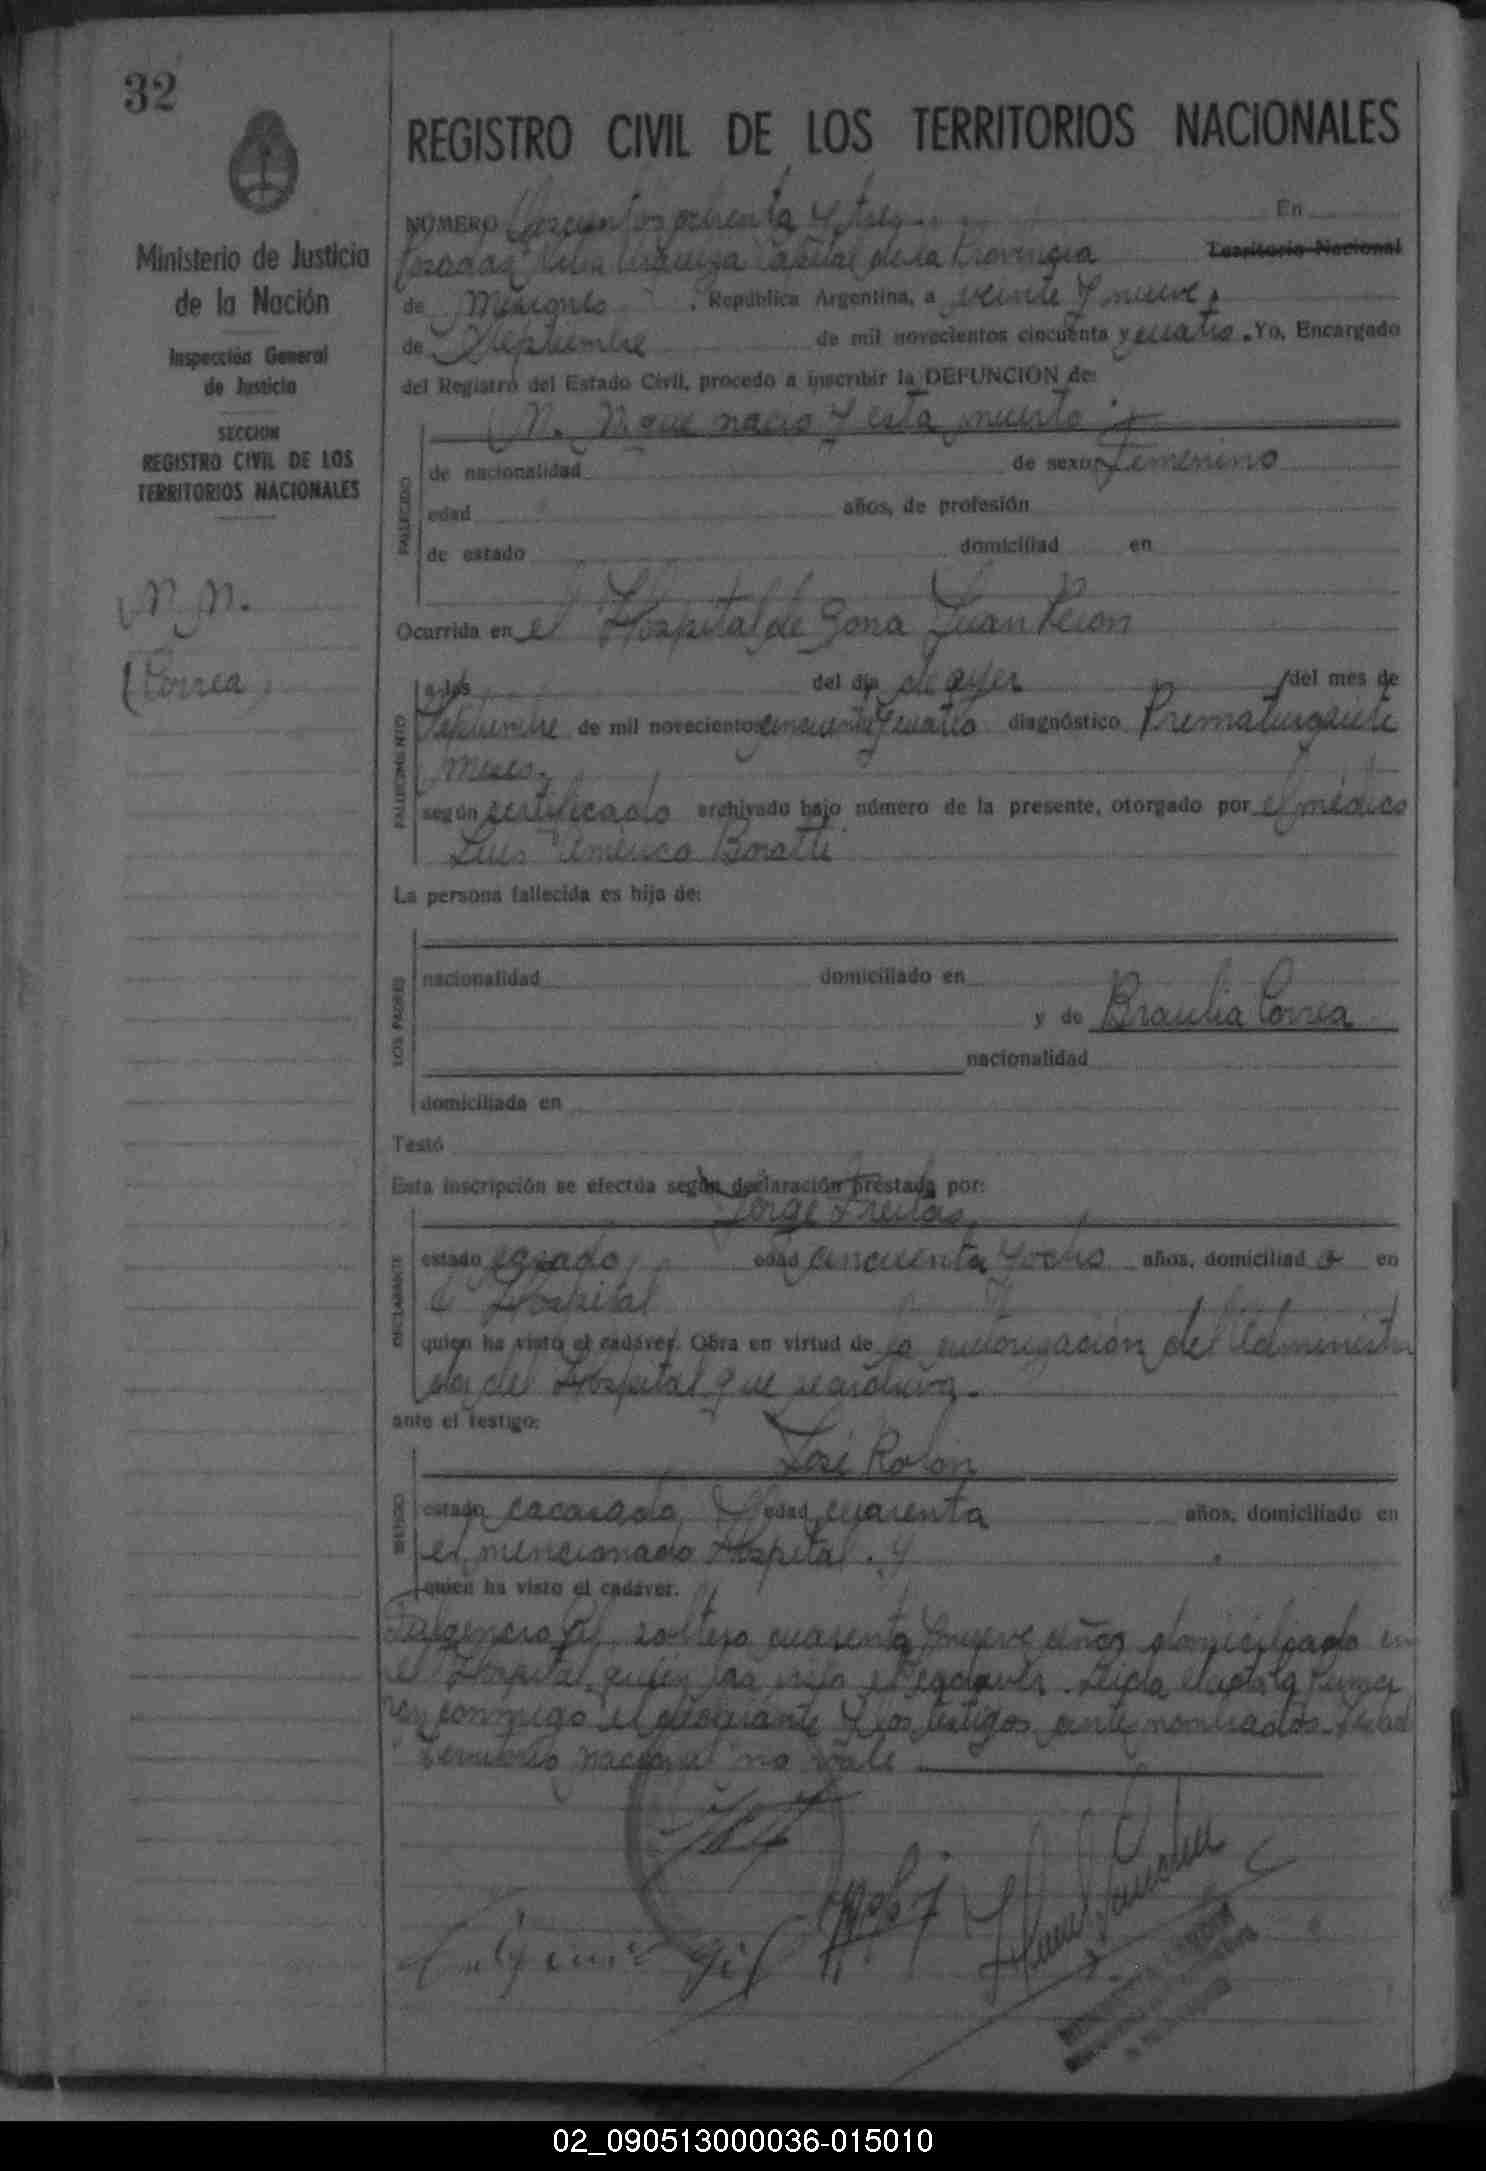 32
REGISTRO CIVIL DE LOS TERRITORIOS NACIONALES
Ministerio de Justicia
de la Nación
Inspección General
de Justicia
SECCION
REGISTRO CIVIL DE LOS
TERRITORIOS NACIONALES
N. N.
(Correa)
NUMERO ochenta y tres En
Posadas Capital de la Provincia Territorio Nacional
de Misiones, República Argentina, a veinte y nueve
de Septiembre de mil novecientos cincuenta y cuatro. Yo, Encargado
del Registro del Estado Civil, procedo a inscribir la DEFUNCION de:
N. N. que nació y está muerto
FALLECIDO
de nacionalidad de sexo femenino
edad años, de profesión
de estado domiciliad en
Ocurrida en el Hospital de Zona Juan Perón
FALLECIMIENTO
a las del día de ayer del mes de
Septiembre de mil novecientos cincuenta y cuatro diagnóstico
meses
según certificado archivado bajo número de la presente, otorgado por el médico
Luis Américo
La persona fallecida es hija de:
LOS PADRES
nacionalidad domiciliado en
y de Braulia Correa
nacionalidad
domiciliada en
Testó
Esta inscripción se efectúa según declaración prestada por:
Jorge Freitas
DECLARANTE
estado casado edad cincuenta y ocho años, domiciliad o en
el Hospital
quien ha visto el cadáver. Obra en virtud de la autorización del Administra
dor del Hospital que se archiva.
ante el testigo:
José Rolón
TESTIGO
estado edad cuarenta años, domiciliado en
el mencionado Hospital. y
quien ha visto el cadáver.
Fulgencio Gil soltero cuarenta y nueve años domiciliado en
el Hospital, quien ha visto el cadáver. Leída el acta la firma
ron conmigo el declarante y los testigos ante nombrados.
Territorio Nacional no vale
Fulgencio Gil
02_090513000036-015010